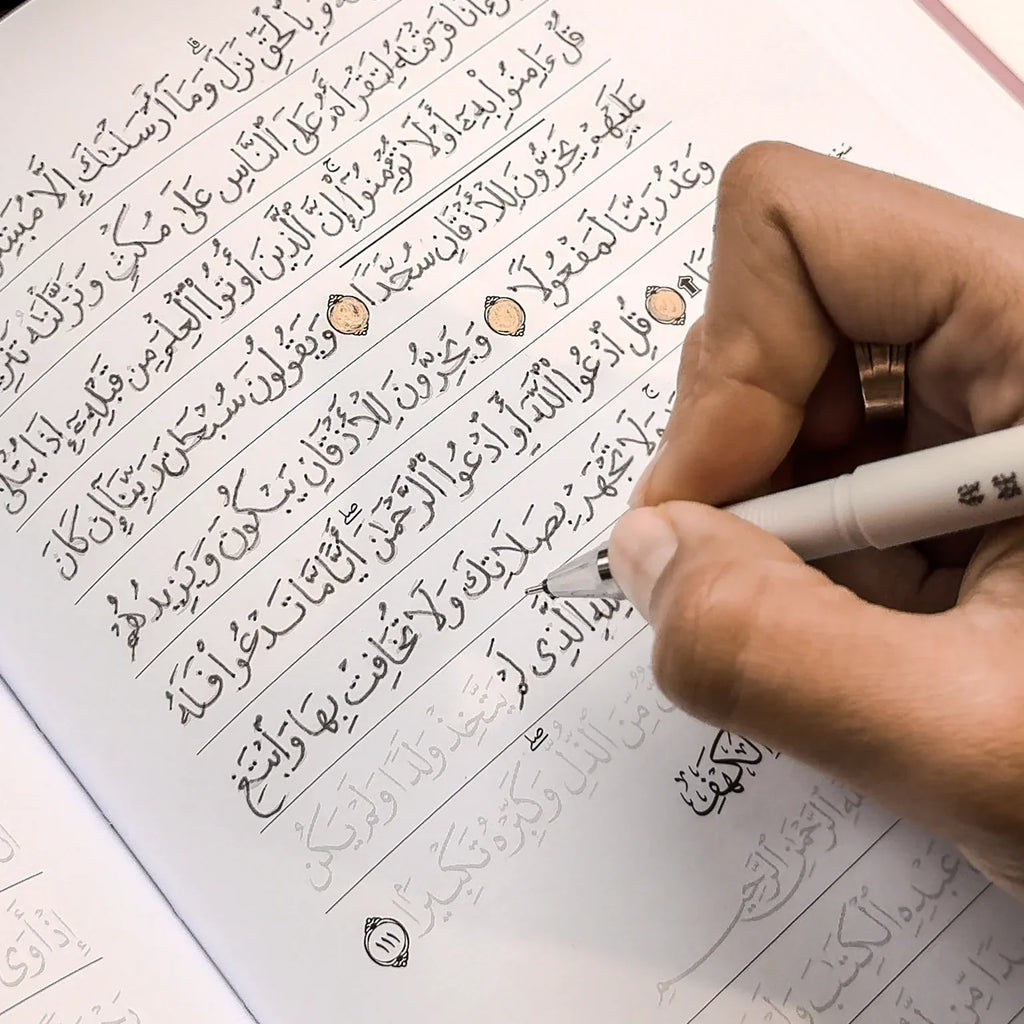 وَبِٱلْحَقِّ نَزَلَ ۗ وَمَآ أَرْسَلْنَٰكَ إِلَّا
فَرَقْنَٰهُ لِتَقْرَأَهُۥ عَلَى ٱلنَّاسِ عَلَىٰ مُكْثٍ وَنَزَّلْنَٰهُ
قُلْ ءَامِنُوا۟ بِهِۦٓ أَوْ لَا تُؤْمِنُوٓا۟ ۚ إِنَّ ٱلَّذِينَ أُوتُوا۟ ٱلْعِلْمَ مِن قَبْلِهِۦٓ إِذَا يُتْلَىٰ
عَلَيْهِمْ يَخِرُّونَ لِلْأَذْقَانِ سُجَّدًا وَيَقُولُونَ سُبْحَٰنَ رَبِّنَآ إِن كَانَ
وَعْدُ رَبِّنَا لَمَفْعُولًا وَيَخِرُّونَ لِلْأَذْقَانِ يَبْكُونَ وَيَزِيدُهُمْ
قُلِ ٱدْعُوا۟ ٱللَّهَ أَوِ ٱدْعُوا۟ ٱلرَّحْمَٰنَ ۖ أَيًّا مَّا تَدْعُوا۟ فَلَهُ
وَلَا تَجْهَرْ بِصَلَاتِكَ وَلَا تُخَافِتْ بِهَا وَٱبْتَغِ
ٱلَّذِى لَمْ يَتَّخِذْ وَلَدًا وَلَمْ يَكُن
مِّنَ ٱلذُّلِّ ۖ وَكَبِّرْهُ تَكْبِيرًۢا ١١١
ٱلْكَهْفِ
ٱلرَّحْمَٰنِ ٱلرَّحِيمِ
عَبْدِهِ ٱلْكِتَٰبَ
إِذْ أَوَى